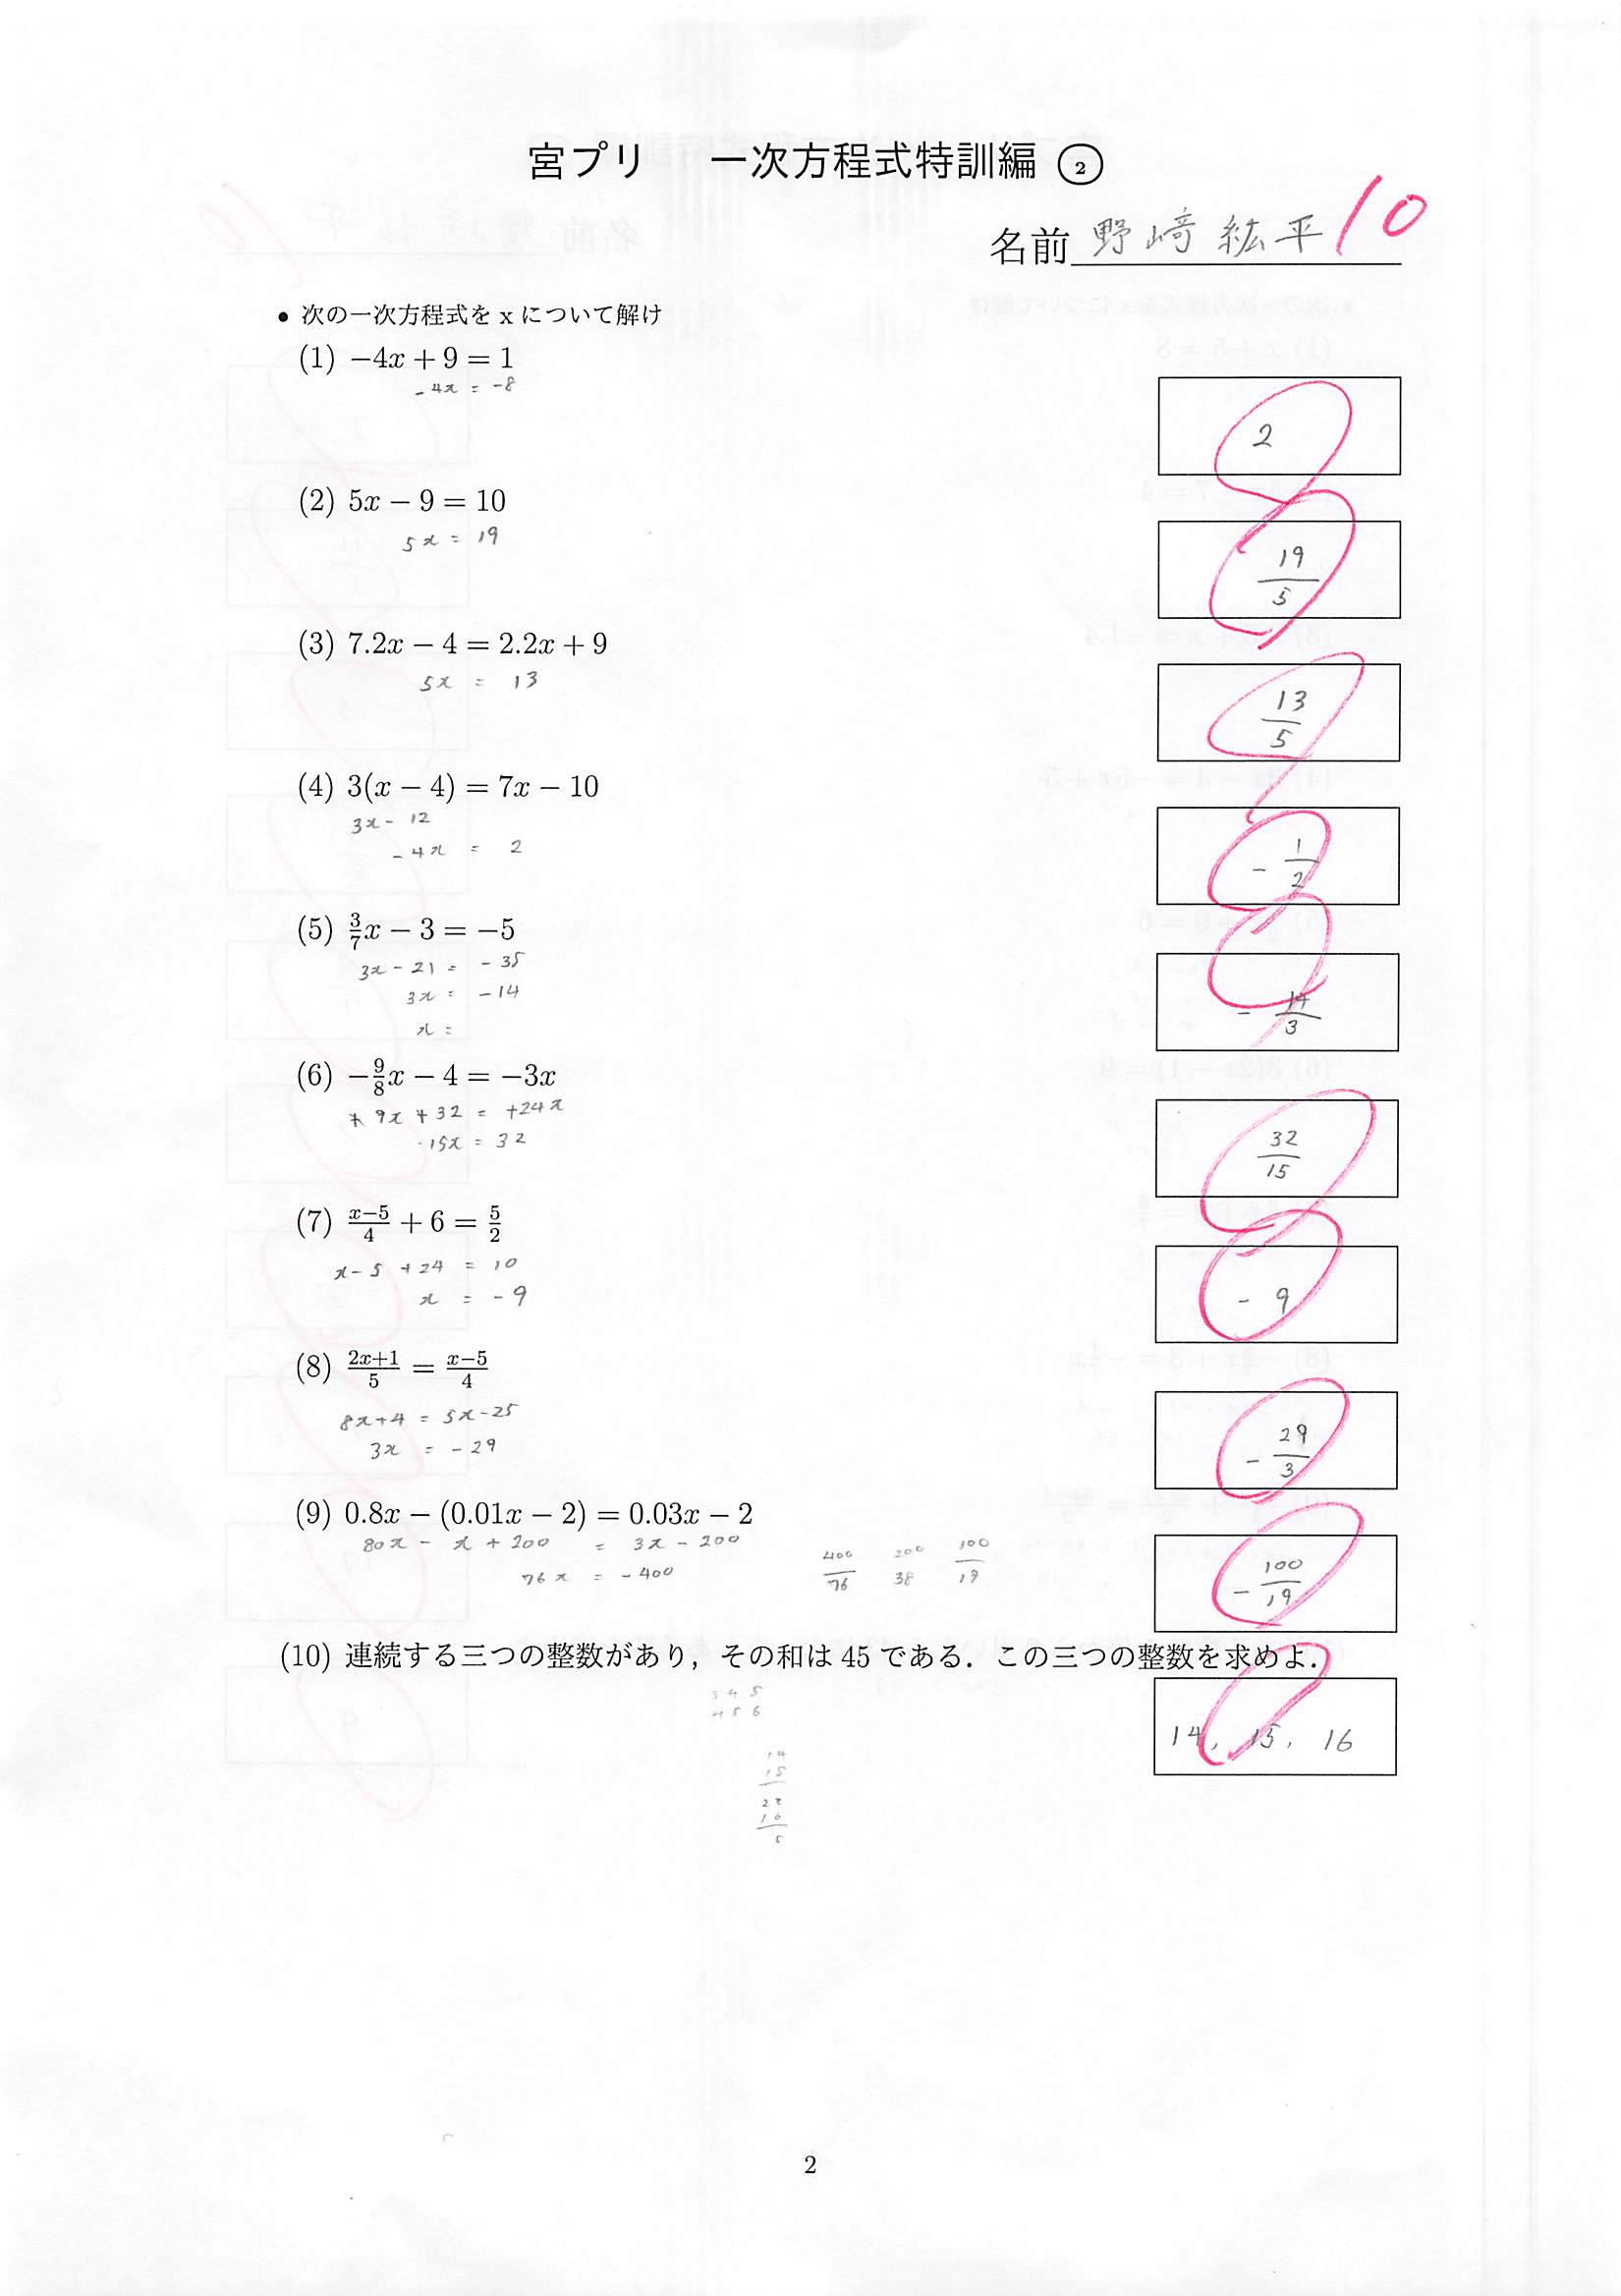 宮プリ 一次方程式特訓編 ②
名前 野﨑 紘平 10
• 次の一次方程式を x について解け
(1) −4x + 9 = 1
-4x = -8
2
(2) 5x − 9 = 10
5x = 19
19/5
(3) 7.2x − 4 = 2.2x + 9
5x = 13
13/5
(4) 3(x − 4) = 7x − 10
3x - 12
-4x = 2
- 1/2
(5) 3/7 x − 3 = −5
3x - 21 = -35
3x = -14
x =
- 14/3
(6) −9/8 x − 4 = −3x
+ 9x + 32 = +24x
15x = 32
32/15
(7) (x−5)/4 + 6 = 5/2
x - 5 + 24 = 10
x = -9
- 9
(8) (2x+1)/5 = (x−5)/4
8x+4 = 5x-25
3x = -29
- 29/3
(9) 0.8x − (0.01x − 2) = 0.03x − 2
80x - x + 200 = 3x - 200
76x = -400
400/76 200/38 100/19
- 100/19
(10) 連続する三つの整数があり，その和は 45 である．この三つの整数を求めよ．
3 4 5
4 5 6
14, 15, 16
14
15
16
5
2